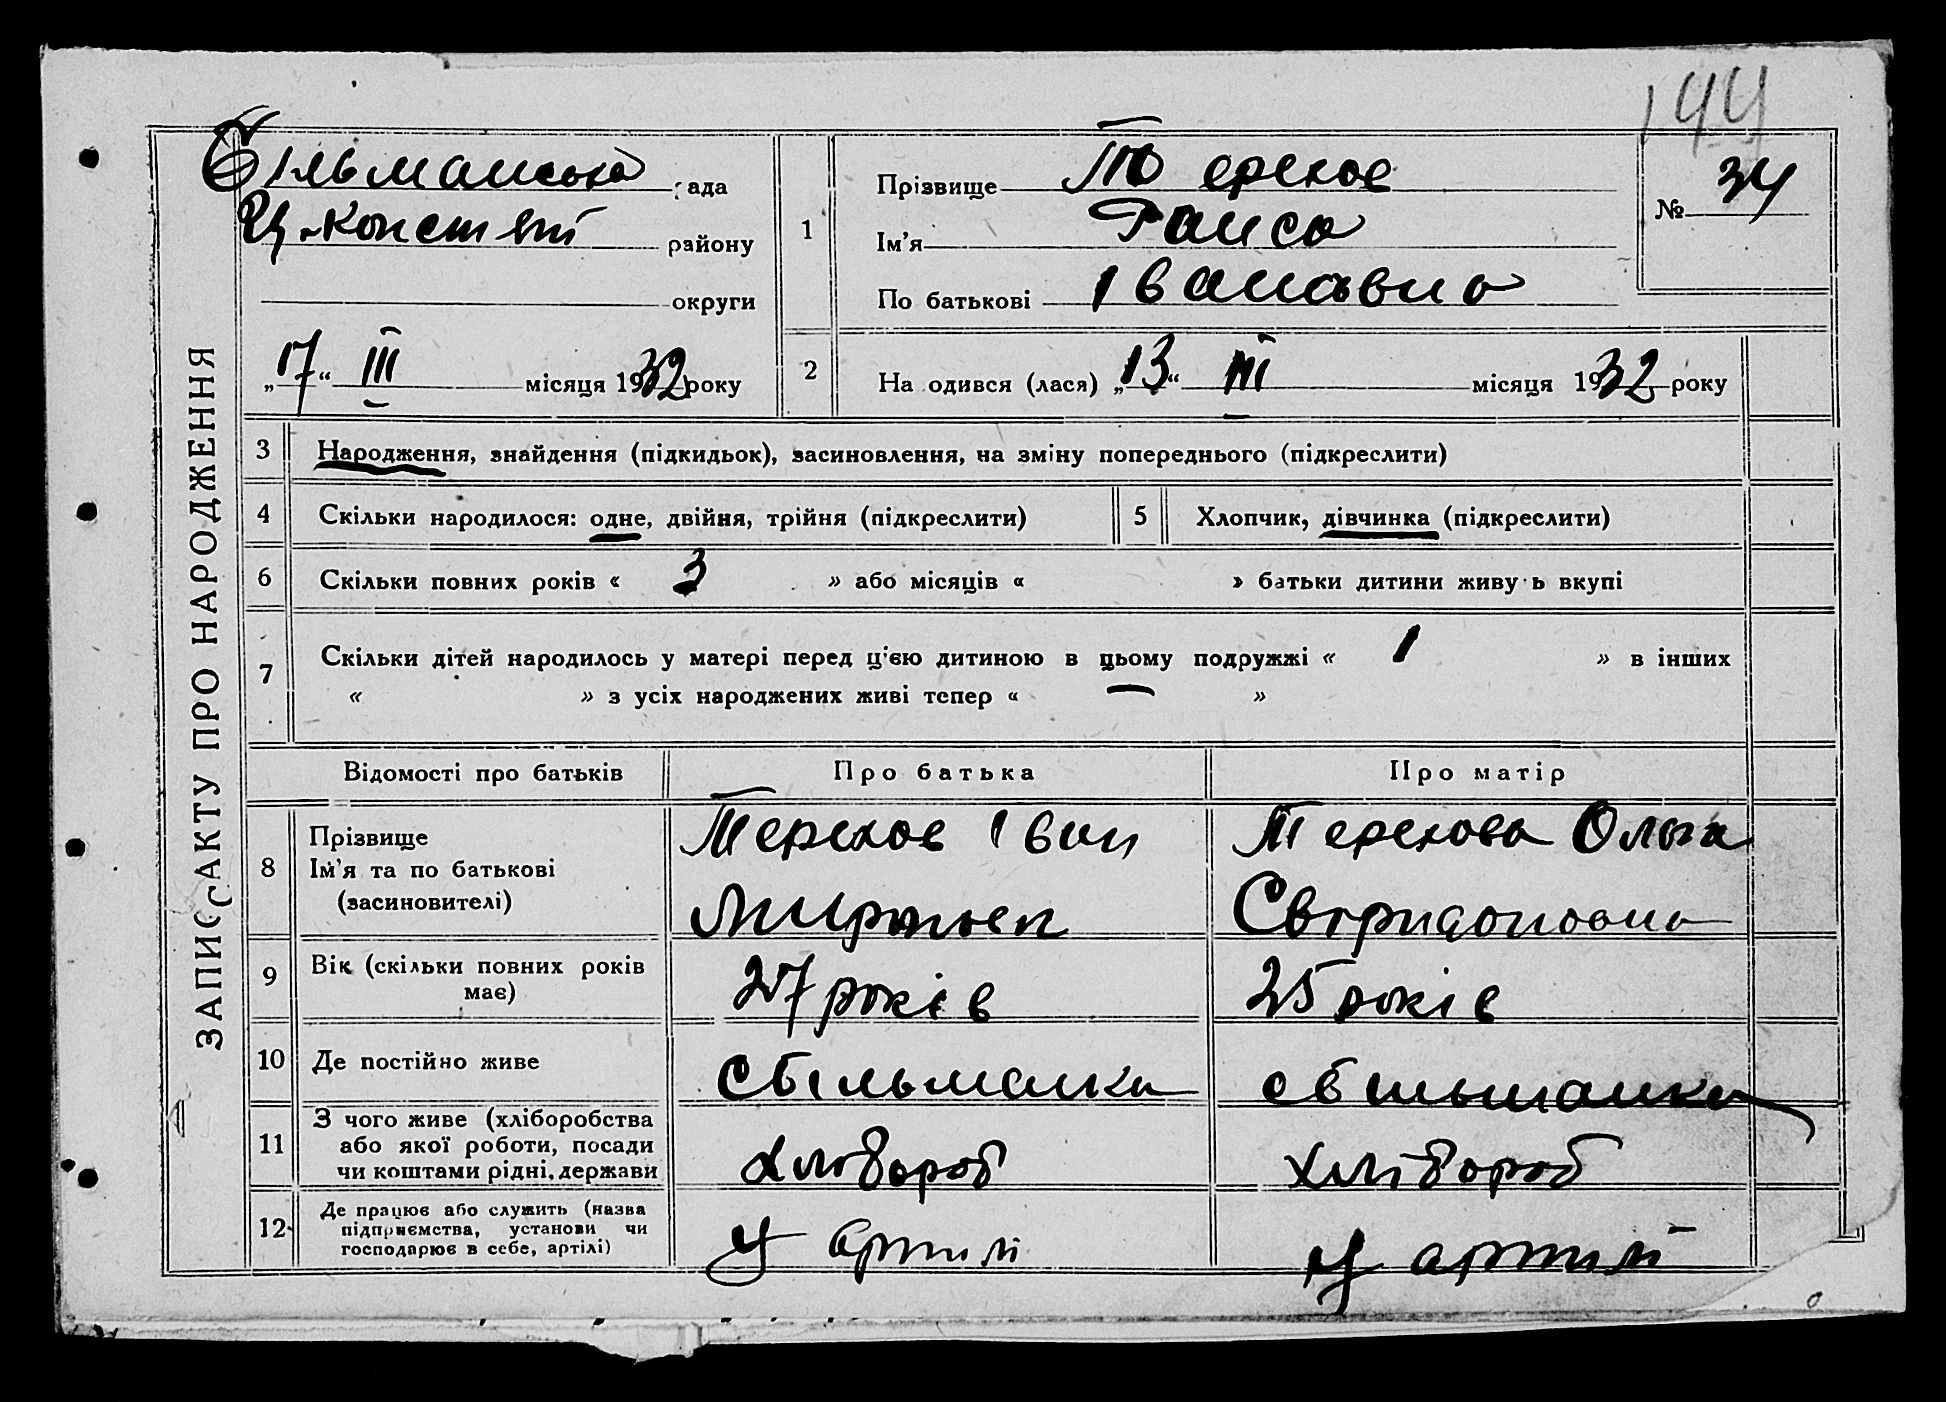 144
ЗАПИС АКТУ ПРО НАРОДЖЕННЯ
Більманська рада
Ц-Констят району
округи
„17“ III місяця 1932 року
1
Прізвище Терехов
Ім’я Раиса
По батькові Івановна
№ 34
2
На одився (лася) „13“ III місяця 1932 року
3 Народження, знайдення (підкидьок), засиновлення, на зміну попереднього (підкреслити)
4 Скільки народилося: одне, двійня, трійня (підкреслити)
5 Хлопчик, дівчинка (підкреслити)
6 Скільки повних років « 3 » або місяців « » батьки дитини живу ь вкупі
7 Скільки дітей народилось у матері перед ц’єю дитиною в цьому подружжі « 1 » в інших
« » з усіх народжених живі тепер « — »
Відомості про батьків Про батька Про матір
8 Прізвище
Ім’я та по батькові
(засиновителі)
Терехов Іван
Терехова Ольга
Свиридоновна
9 Вік (скільки повних років
має)
27 років
25 років
10 Де постійно живе
с Більманка
с Більманка
11 З чого живе (хліборобства
або якої роботи, посади
чи коштами рідні, держави
хлібороб
хлібороб
12 Де працює або служить (назва
підприємства, установи чи
господарює в себе, артілі)
У артилі
У артилі